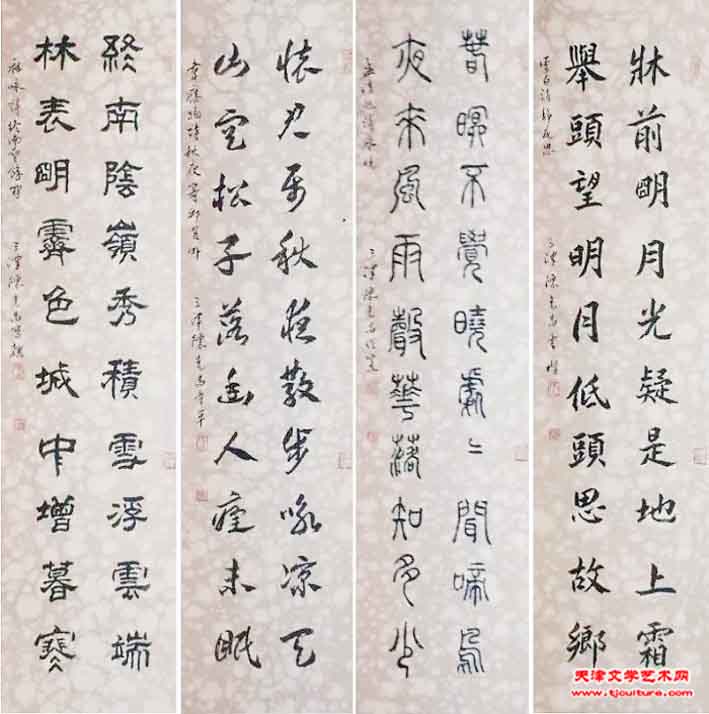 牀前明月光疑是地上霜
舉頭望明月低頭思故鄉
李白詩静夜思
三津陳
春眠不覺曉處〻聞啼鳥
夜來風雨聲華落知多少
孟浩然詩春曉
三津陳
懷君屬秋夜散步詠涼天
山空松子落幽人應未眠
韋應物詩秋夜寄邱員外
三津陳
終南陰嶺秀積雪浮雲端
林表明霽色城中增暮寒
祖咏詩終南望餘雪
三津陳
天津文学艺术网
www.tjculture.com